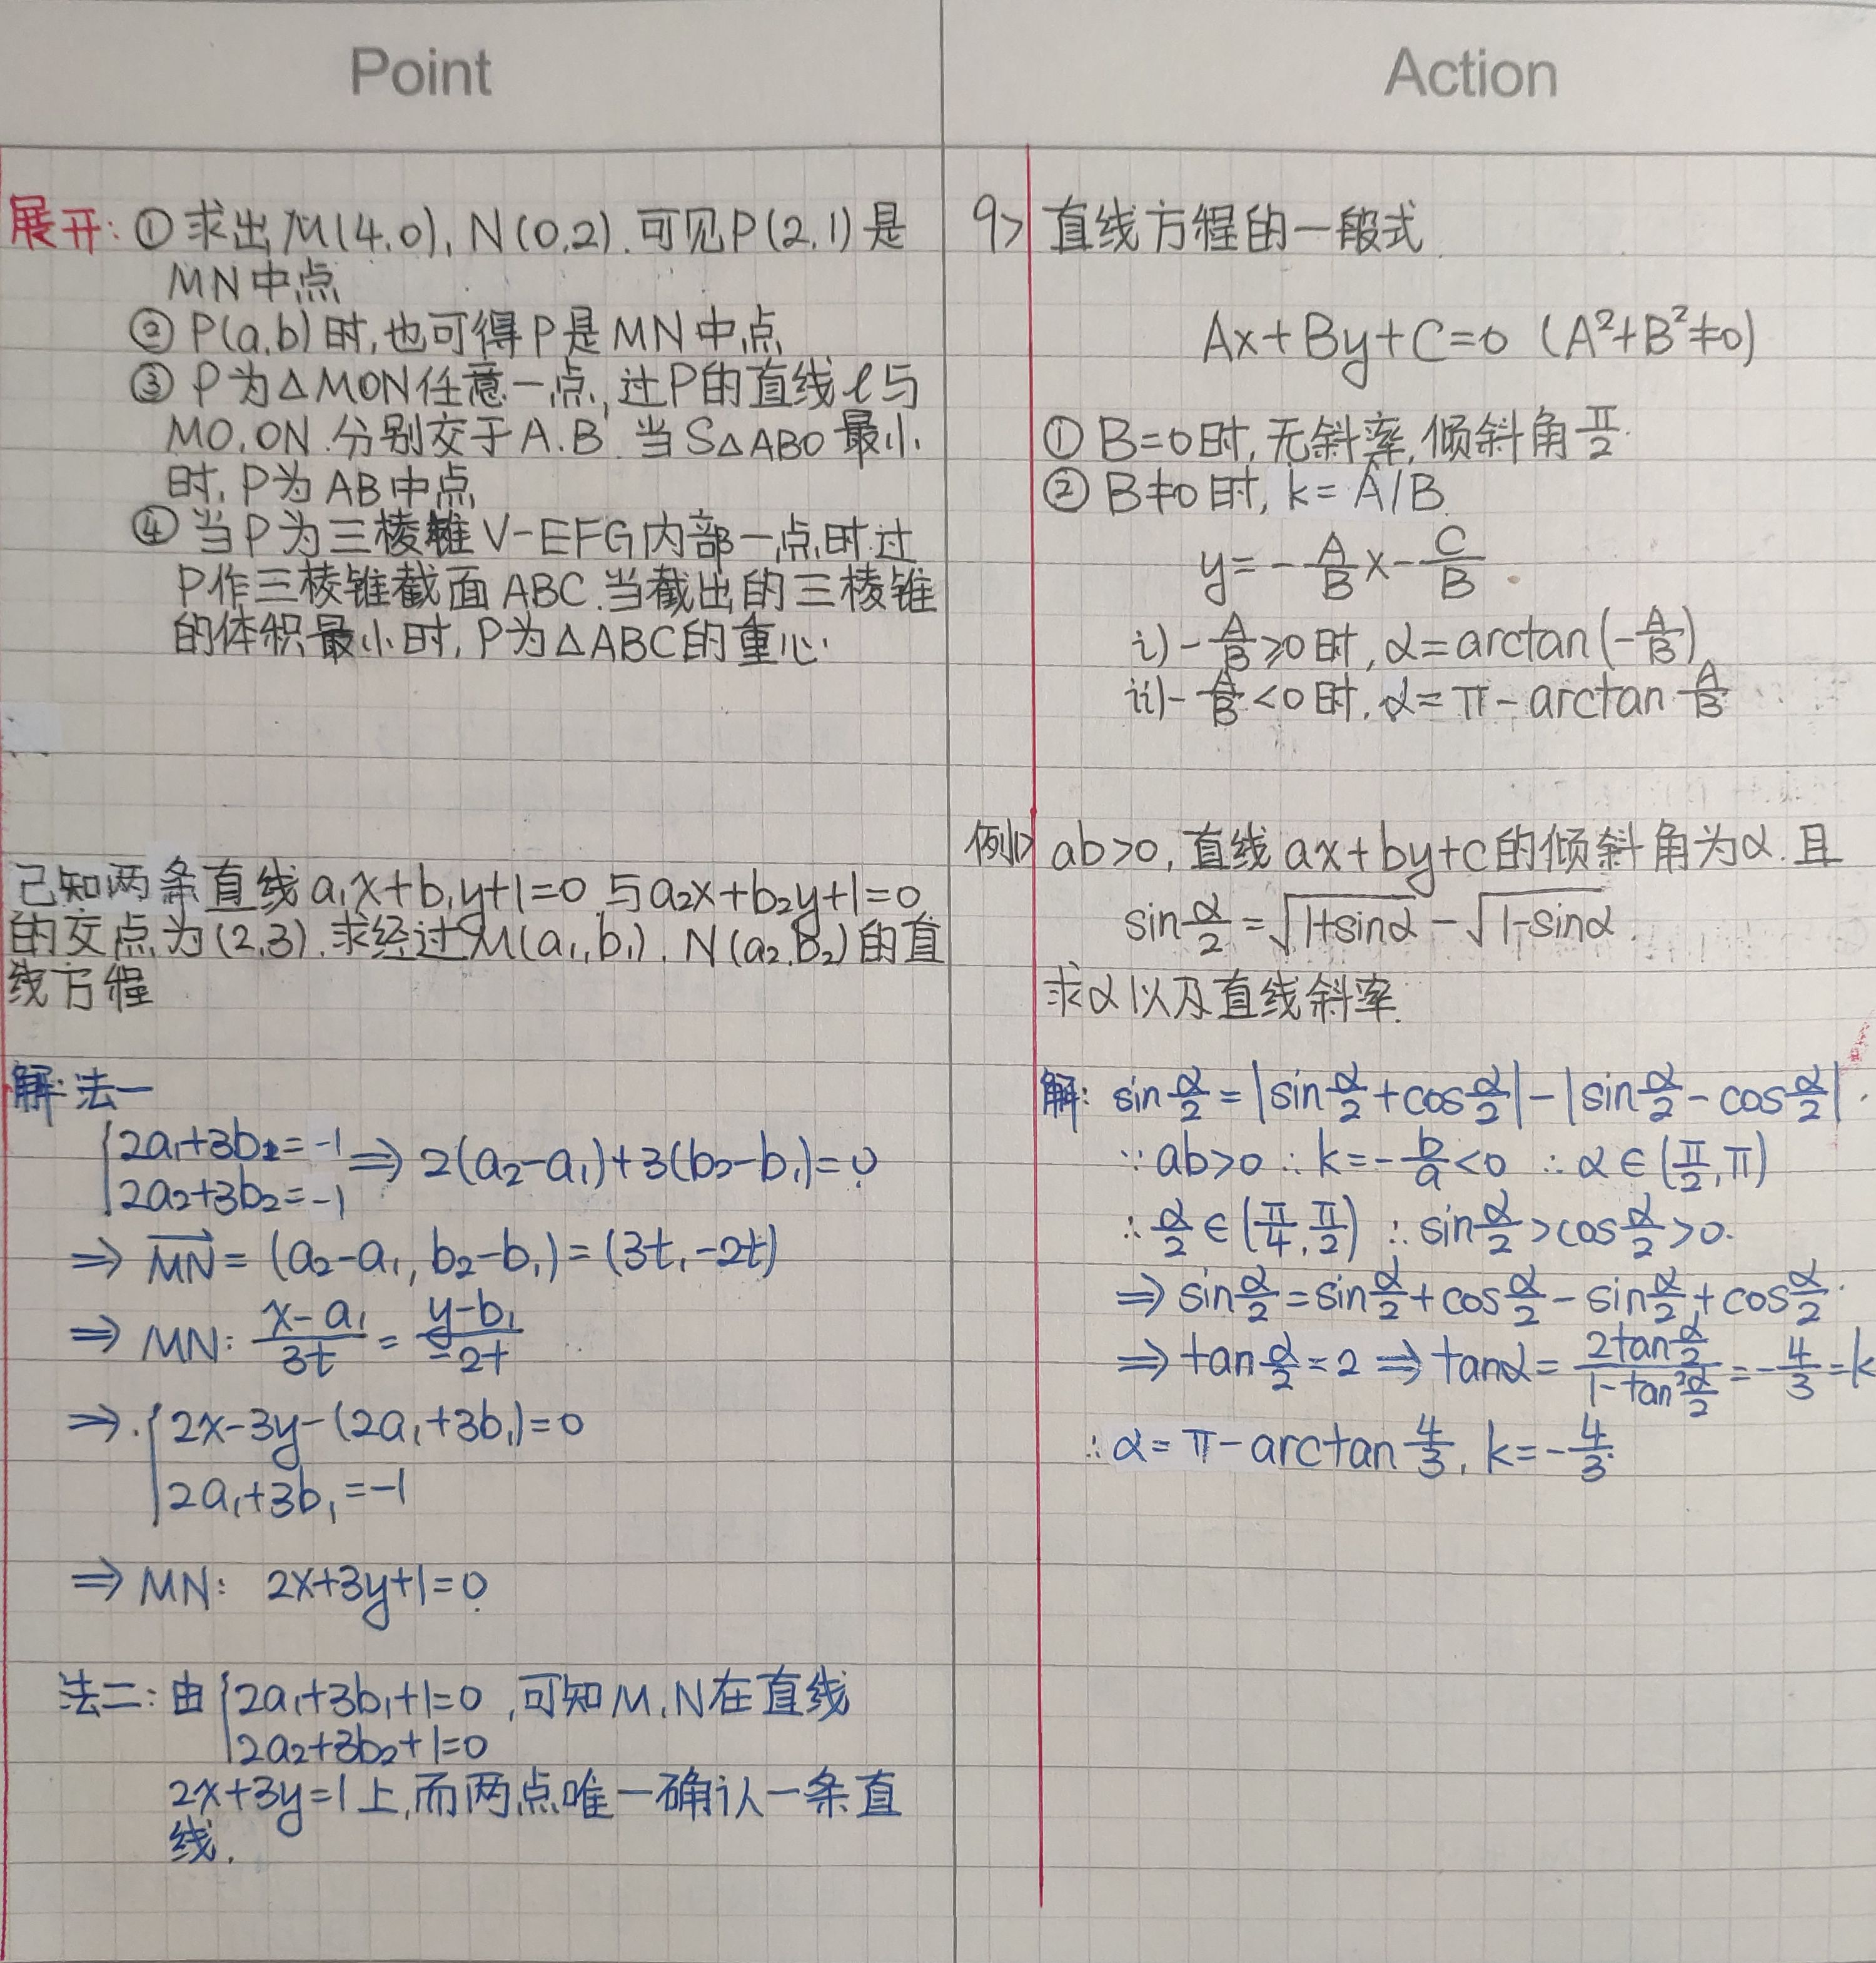 Point
展开: ① 求出M(4,0), N(0,2). 可见P(2,1)是
MN中点
② P(a,b)时,也可得P是MN中点
③ P为△MON任意一点,过P的直线l与
MO,ON.分别交于A.B.当S△ABO最小
时,P为AB中点
④ 当P为三棱锥V-EFG内部一点时.过
P作三棱锥截面ABC.当截出的三棱锥
的体积最小时,P为△ABC的重心.
已知两条直线a₁x+b₁y+1=0与a₂x+b₂y+1=0
的交点为(2,3).求经过M(a₁,b₁).N(a₂,B₂)的直
线方程
解:法一
{2a₁+3b₁=-1 ⇒ 2(a₂-a₁)+3(b₂-b₁)=0
2a₂+3b₂=-1
⇒ \overrightarrow{MN}=(a₂-a₁, b₂-b₁)=(3t,-2t)
⇒ MN: \frac{x-a₁}{3t}=\frac{y-b₁}{-2t}
⇒ {2x-3y-(2a₁+3b₁)=0
2a₁+3b₁=-1
⇒ MN: 2x+3y+1=0
法二:由{2a₁+3b₁+1=0 ,可知M,N在直线
2a₂+3b₂+1=0
2x+3y=1上,而两点唯一确认一条直
线.
Action
9> 直线方程的一般式
Ax+By+C=0 (A²+B²≠0)
① B=0时,无斜率,倾斜角\frac{π}{2}.
② B≠0时, k=A/B.
y=-\frac{A}{B}x-\frac{C}{B}.
i) -\frac{A}{B}≥0时,α=arctan(-\frac{A}{B})
ii) -\frac{A}{B}<0时,α=π-arctan\frac{A}{B}
例1> ab>0,直线ax+by+c的倾斜角为α.且
sin\frac{α}{2}=\sqrt{1+sinα}-\sqrt{1-sinα}.
求α以及直线斜率.
解: sin\frac{α}{2}=|sin\frac{α}{2}+cos\frac{α}{2}|-|sin\frac{α}{2}-cos\frac{α}{2}|.
∵ab>0 ∴k=-\frac{b}{a}<0 ∴α∈(\frac{π}{2},π)
∴\frac{α}{2}∈(\frac{π}{4},\frac{π}{2}) ∴sin\frac{α}{2}>cos\frac{α}{2}>0.
⇒ sin\frac{α}{2}=sin\frac{α}{2}+cos\frac{α}{2}-sin\frac{α}{2}+cos\frac{α}{2}.
⇒ tan\frac{α}{2}=2 ⇒ tanα=\frac{2tan\frac{α}{2}}{1-tan²\frac{α}{2}}=-\frac{4}{3}=k
∴α=π-arctan\frac{4}{3}, k=-\frac{4}{3}.